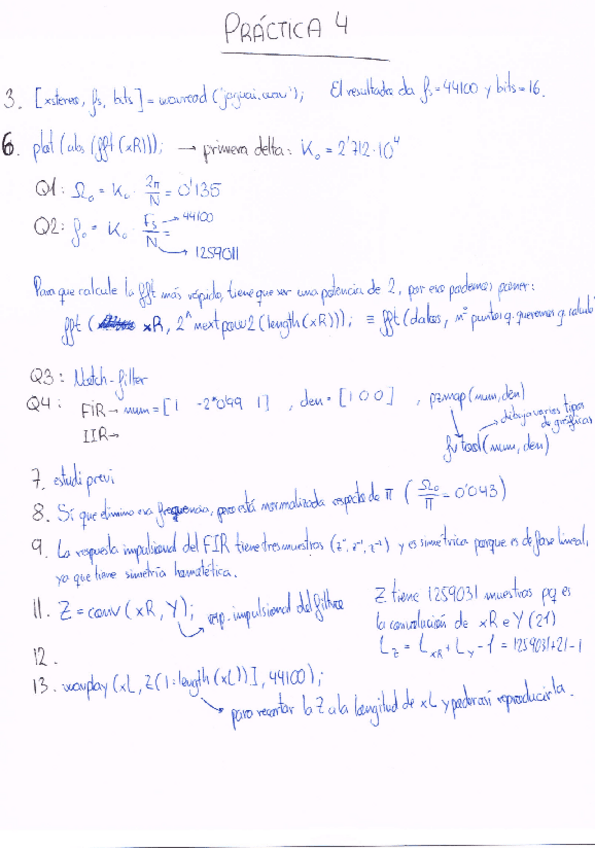 PRÁCTICA 4
3. [xstereo, fs, bits] = wavread ('jaguai.wav'); El resultado da fs = 44100 y bits = 16.
6. plot (abs (fft (xR))); → primera delta: K₀ = 2'712·10⁴
Q1: Ω₀ = K₀ · 2π/N = 0'135
Q2: f₀ = K₀ · Fs/N =
→ 44100
→ 1259011
Para que calcule la fft más rápido, tiene que ser una potencia de 2, por eso podemos poner:
fft ( xR, 2^nextpow2 (length (xR))); ≡ fft (datos, nº puntos q. queremos q. calcule
Q3: Notch-filter
Q4: FIR → num = [1 -2*0'99 1] , den = [1 0 0] , pzmap (num, den)
IIR →
→ dibuja varios tipos de gráficas
fvtool (num, den)
7. estudi previ
8. Sí que elimina esa frequencia, pero está normalizada respecto de π (Ω₀/π = 0'043)
9. La respuesta impulsional del FIR tiene tres muestras (z⁰, z⁻¹, z⁻²) y es simétrica porque es de fase lineal,
ya que tiene simetría hermética.
11. Z = conv (xR, Y); → resp. impulsional del filtro
Z tiene 1259031 muestras pq es
la convolución de xR e Y (21)
L_Z = L_xR + L_Y - 1 = 1259031+21-1
12.
13. wavplay (xL, Z(1:length (xL))], 44100);
→ para recortar la Z a la longitud de xL y poder así reproducirla.